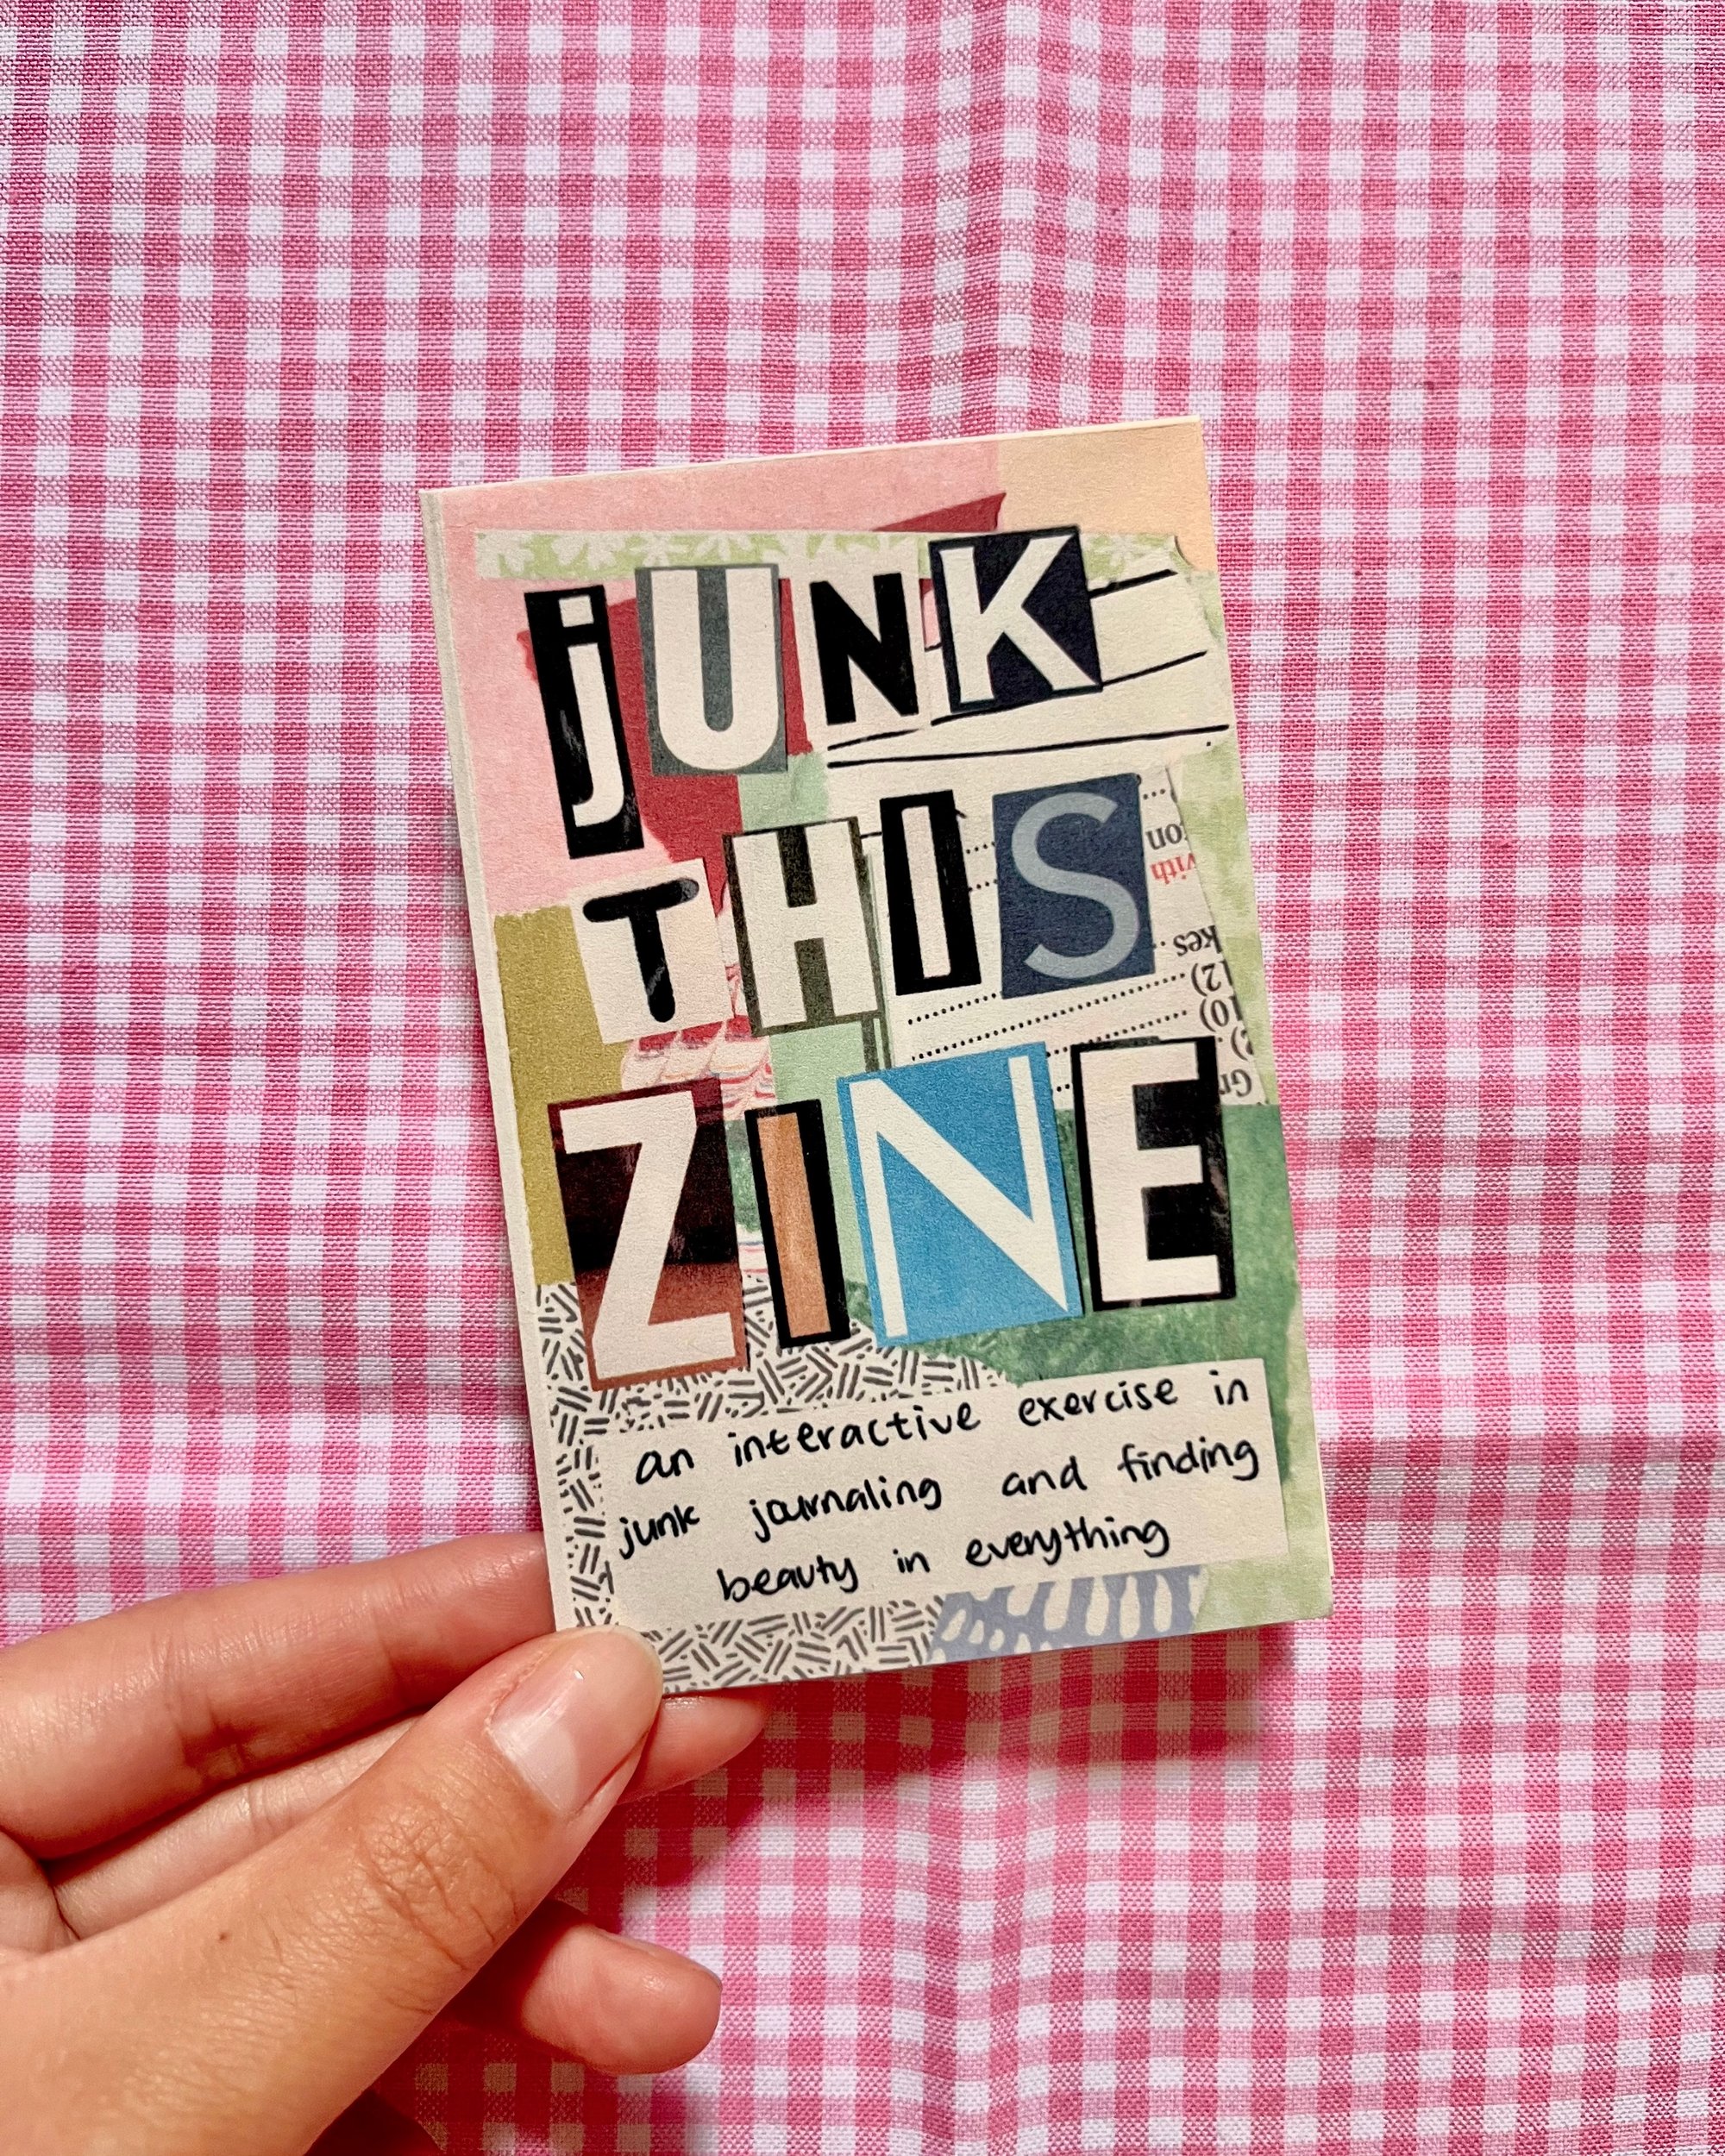 jUNK
THIS
ZINE
an interactive exercise in
junk journaling and finding
beauty in everything
on
with
kes
12)
10)